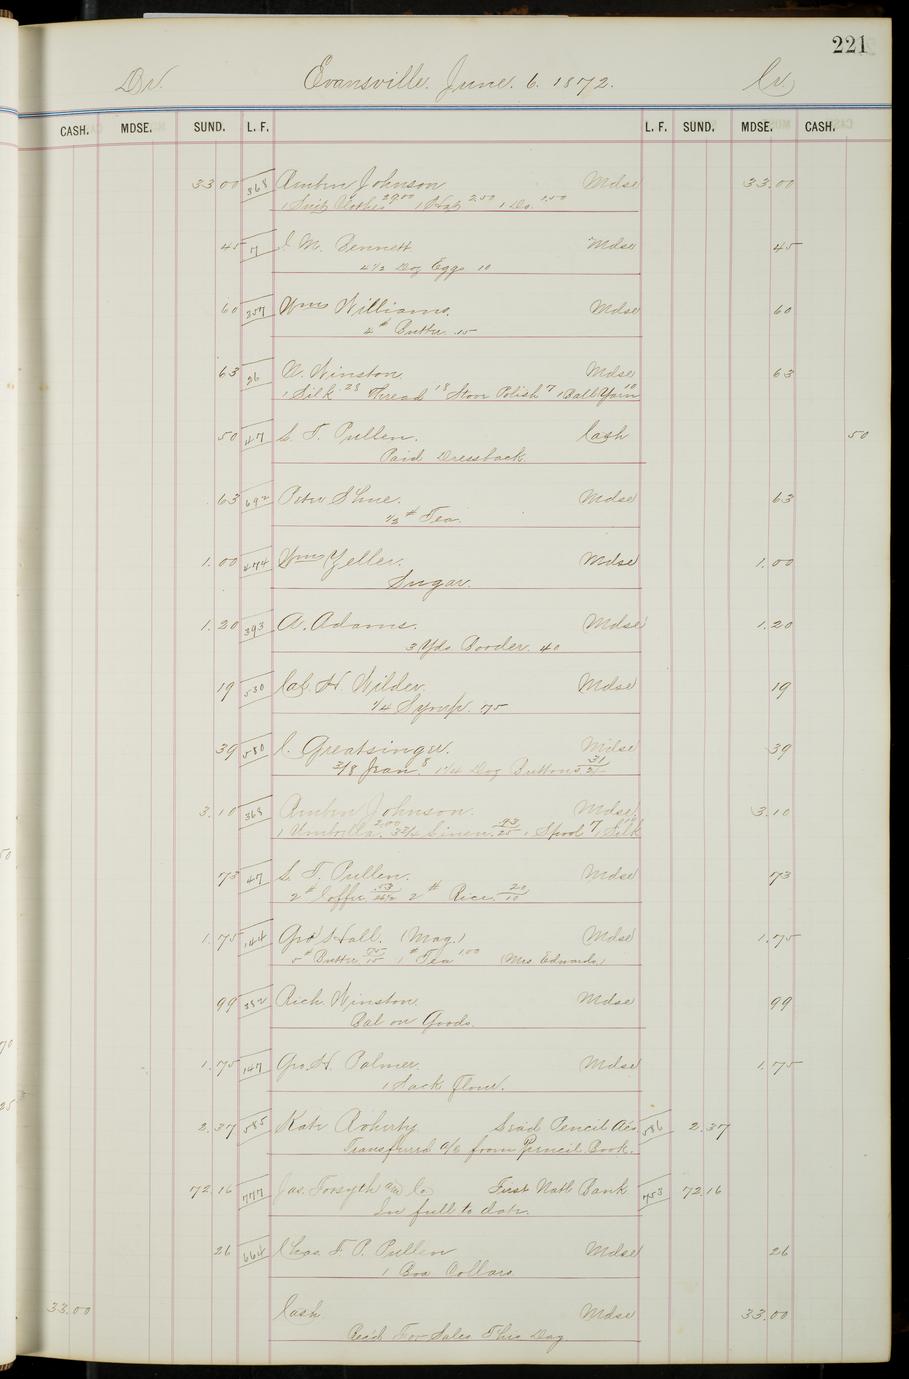 221
Dr. Evansville. June. 6. 1872. Cr.
CASH. MDSE. SUND. L. F. L. F. SUND. MDSE. CASH.
33 00 368 Johnson Mdse 33.00
1 Suit Clothes 29.00 1 Hat 2.50 1 Do. 1.50
45 7 M. Bennett Mdse 45
4 1/2 Doz Eggs 10
60 257 Wms Williams. Mdse 60
4 # Butter .15
63 26 Winston. Mdse 63
1 Silk .28 Thread 18 Stove Polish 7 1 Ball Yarn 10
50 47 S. T. Pullen. Cash 50
Paid Dressback.
63 692 Peter Shue. Mdse 63
1/2 # Tea.
1.00 474 Wms Zeller. Mdse 1.00
Sugar.
1.20 393 A. Adams. Mdse 1.20
3 Yds Boorder. 40
19 530 Cal. H. Wilder. Mdse 19
1/4 Syrup. 75
39 580 C. Greatsinger. Mdse 39
3/8 Jean. 8 1 1/4 Doz Buttons 31/25
3.10 368 Johnson. Mdse. 3.10
1 Umbrella. 2.00 Linen. 93/25 1 Spool 7 1 Silk 10
73 47 S. T. Pullen. Mdse 73
2 # Coffee .53/26 1/2 2 # Rice. 20/10
1.75 144 Geo Hall. (Mag.) Mdse 1.75
5 # Butter. 75/15 1 # Tea 1.00 (Mrs. Edwards)
99 352 Rich. Winston. Mdse 99
Bal on Goods.
1.75 147 Geo. H. Palmer. Mdse 1.75
1 Sack Flour.
2.37 585 Kate Doherty Lead Pencil Acc 586 2.37
Transferred a/c from Pencil Book.
72.16 777 Jas. Forsyth and Co First Natl Bank 753 72.16
In full to date.
26 664 Chas. F. P. Pullen Mdse 26
1 Box Collars
33.00 Cash Mdse 33.00
Rec'd For Sales This Day